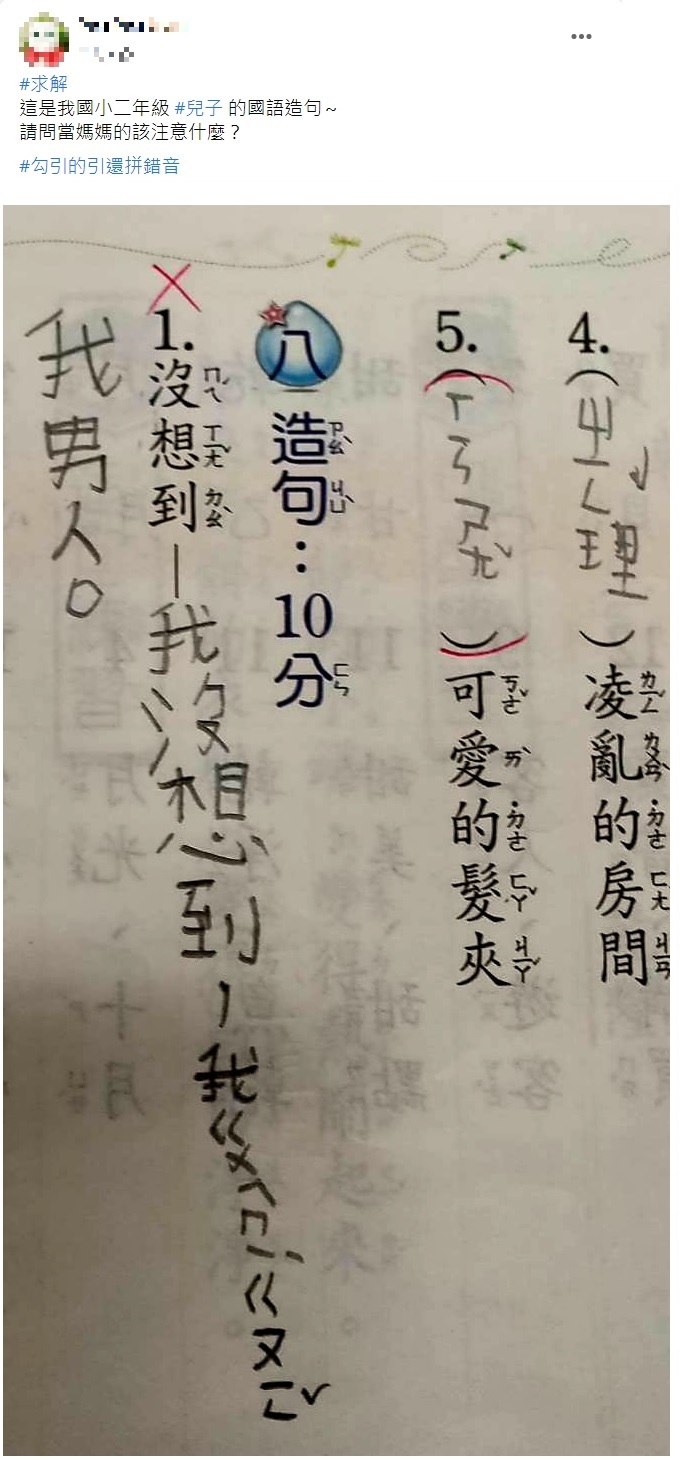 #求解
這是我國小二年級 #兒子 的國語造句～
請問當媽媽的該注意什麼？
#勾引的引還拼錯音
4.（ㄓㄧㄥˇ理）凌亂的房間
5.（）可愛的髮夾
八 造句：10分
1. 沒想到—我沒想到—我ㄍㄨㄟㄇㄧˋㄍㄡㄧㄥˇ
我男人。